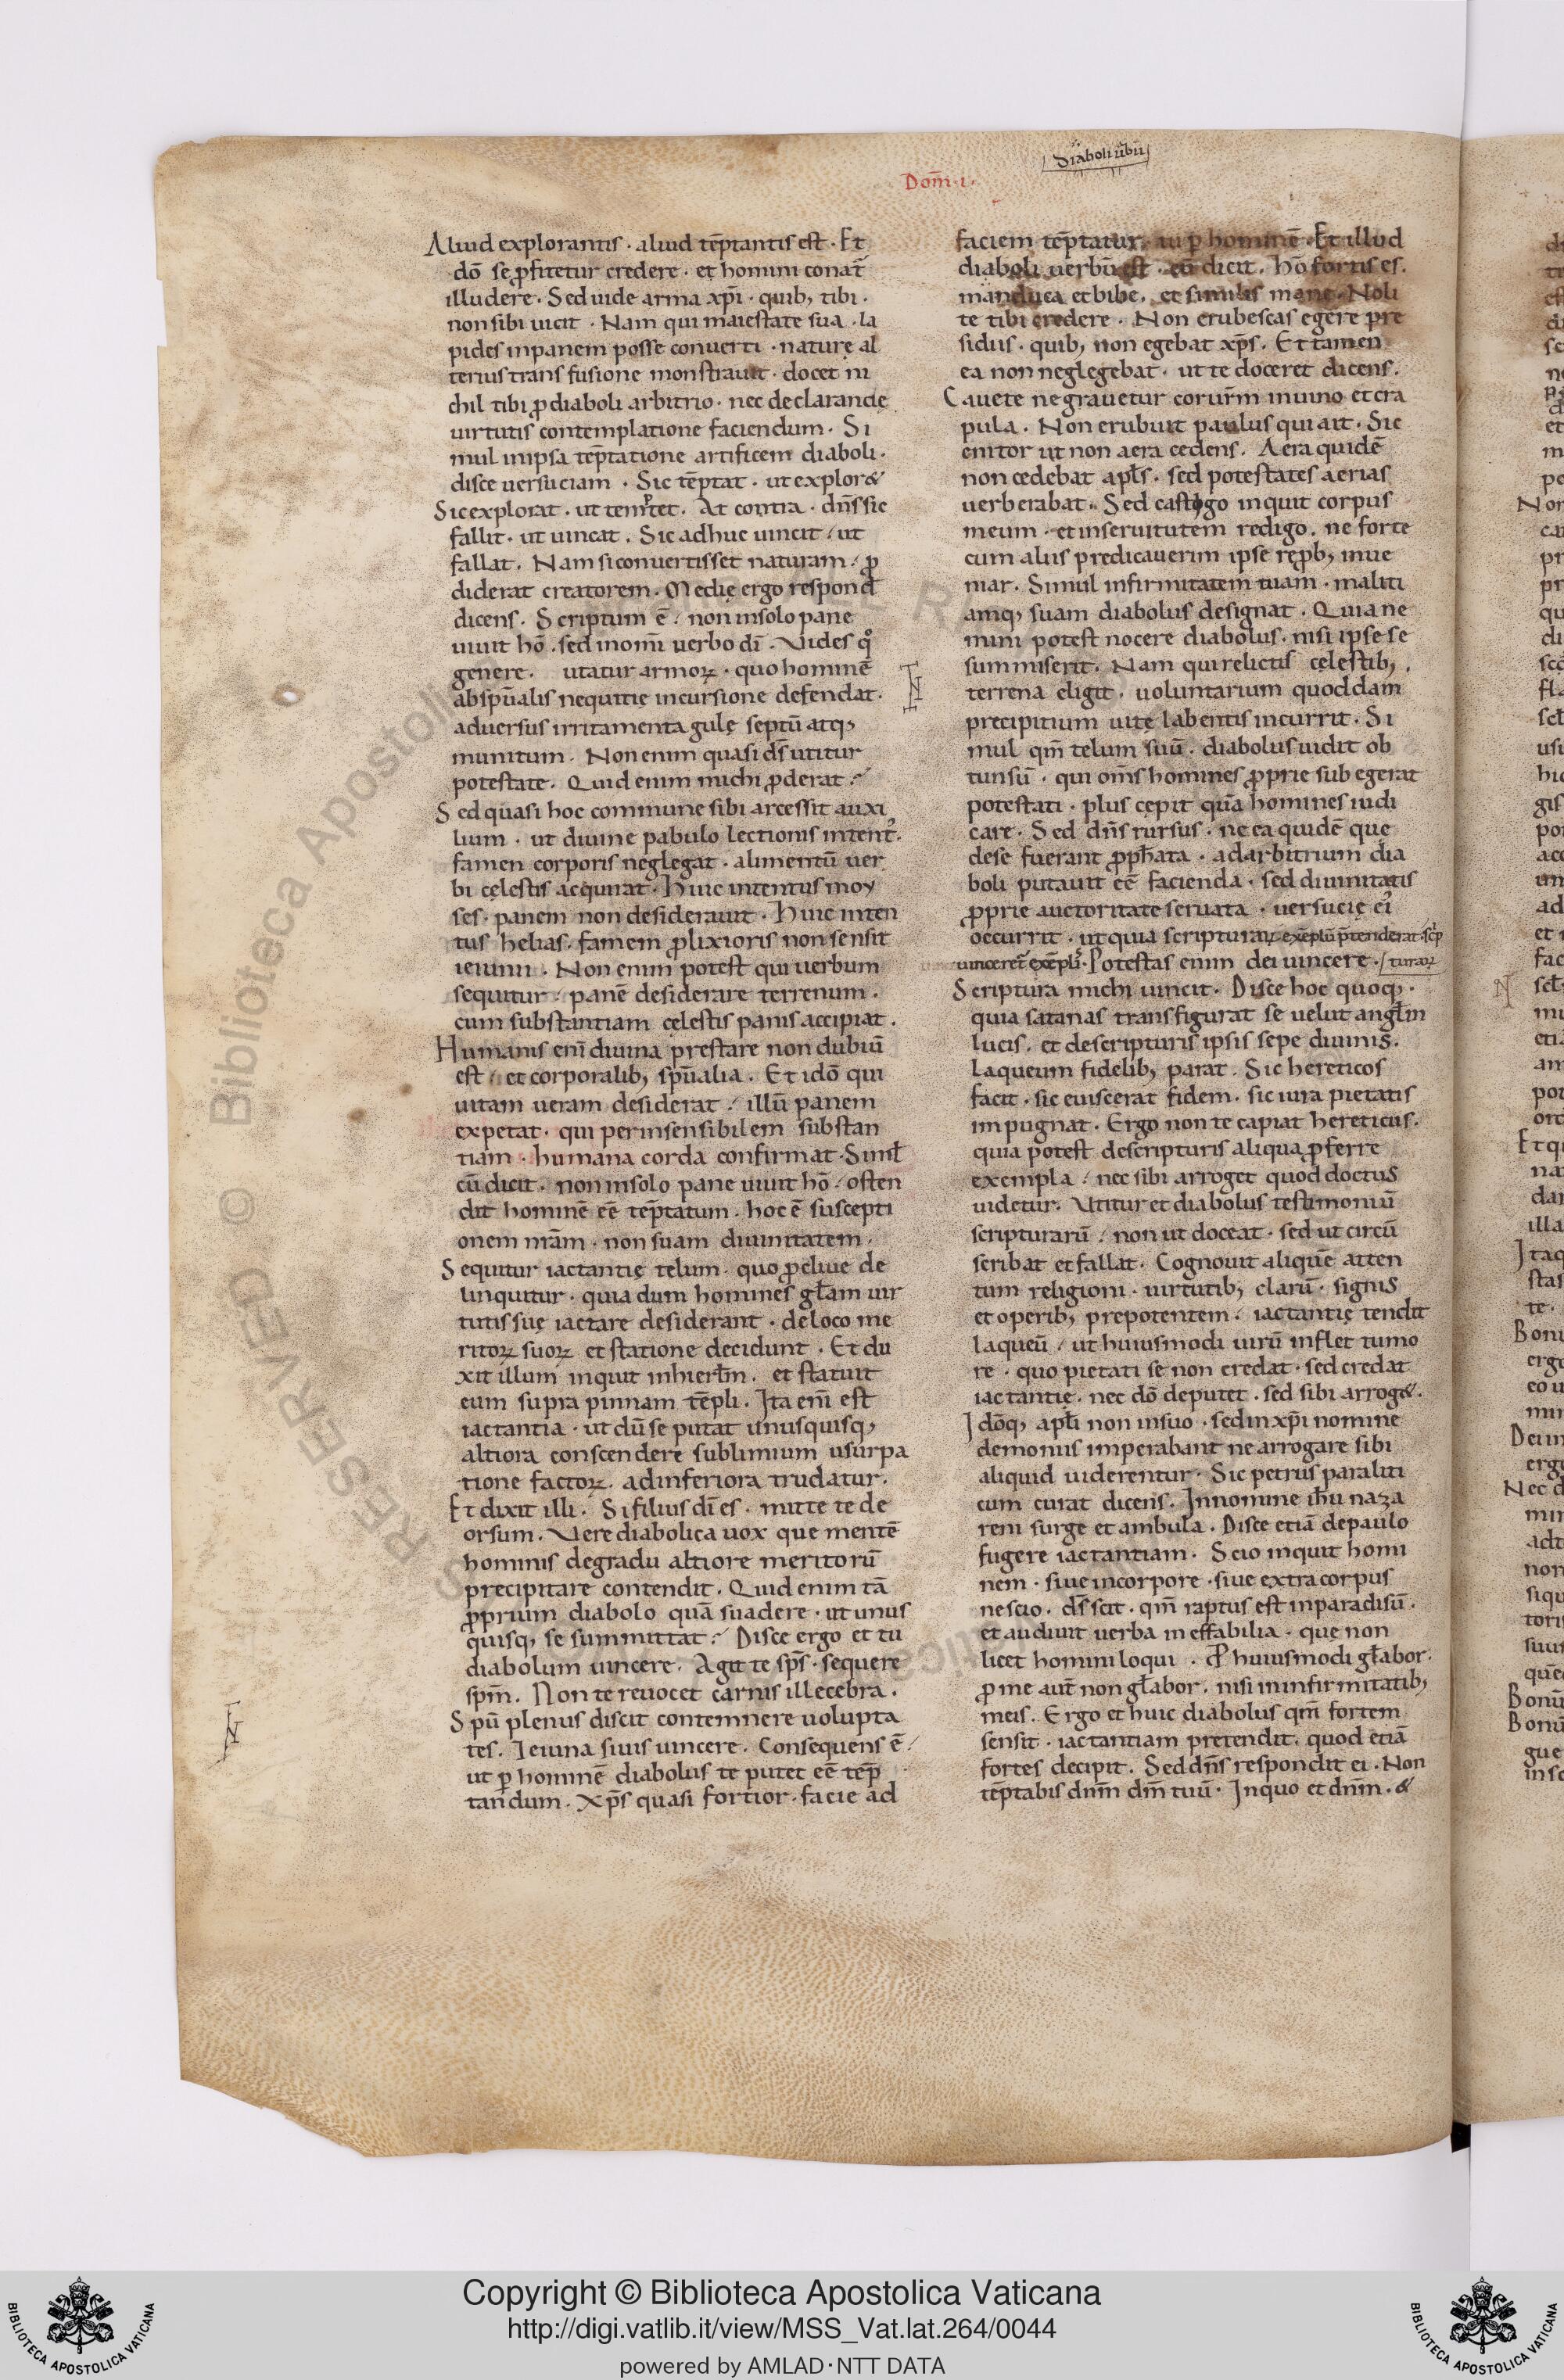 Diaboli ūbū
Dom̄·ı·
Aliud explorantis · aliud tēptantis est · Et
dō se ꝓfitetur credere · et homini conat̄
illudere · Sed uide arma xp̄i · quib; tibi ·
non sibi uicit · Nam qui maiestate sua · la
pides in panem posse conuerti · naturę al
terius transfusione monstrauit · docet ni
chil tibi ꝓ diaboli arbitrio · nec declarandę
uirtutis contemplatione faciendum · Si
mul in ipsa tēptatione artificem diaboli ·
disce uersuciam · Sic tēptat · ut explor&
Sic explorat · ut temptet · At contra · dn̄s sic
fallit · ut uincat · Sic adhuc uincit / ut
fallat · Nam si conuertisset naturam / ꝓ
diderat creatorem · Medię ergo respond̄
dicens · Scriptum ē / non in solo pane
uiuit hō · sed in om̄i uerbo dī · Vides qͦ
genere · utatur armoꝝ · quo hominē
ab sp̄ualis nequitię incursione defendat ·
aduersus irritamenta gulę septū atq;
munitum · Non enim quasi ds̄ utitur
potestate · Quid enim michi ꝓderat /
Sed quasi hoc commune sibi arcessit auxi
lium · ut diuine pabulo lectionis intent᾿ ·
famen corporis neglegat · alimentū uer
bi cęlestis acquirat · Huic intentus moy
ses · panem non desiderauit · Huic inten
tus helias · famem ꝓlixioris non sensit
ieiunii · Non enim potest qui uerbum
sequitur / panē desiderare terrenum ·
cum substantiam cęlestis panis accipiat ·
Humanis enī diuina prestare non dubiū
est / et corporalib; sp̄ualia · Et idō qui
uitam ueram desiderat / illū panem
expetat · qui per insensibilem substan
tiam · humana corda confirmat · Simł
cū dicit · non in solo pane uiuit hō / osten
dit hominē eē tēptatum · hoc ē suscepti
onem nr̄am · non suam diuinitatem ·
Sequitur iactantię telum · quo ꝓcliue de
linquitur · quia dum homines głam uir
tutis suę iactare desiderant · de loco me
ritoꝝ suoꝝ et statione decidunt · Et du
xit illum inquit in hierłm · et statuit
eum supra pinnam tēpli · Ita enī est
iactantia · ut dū se putat unusquisq;
altiora conscendere sublimium usurpa
tione factoꝝ · ad inferiora trudatur ·
Et dixit illi · Si filius dī es · mitte te de
orsum · Vere diabolica uox que mentē
hominis de gradu altiore meritorū
precipitare contendit · Quid enim tā
ꝓprium diabolo quā suadere · ut unus
quisq; se summittat / Disce ergo et tu
diabolum uincere · Agit te sps̄ · sequere
spm̄ · Non te reuocet carnis illecebra ·
Spū plenus discit contemnere uolupta
tes · Ieiuna si uis uincere · Consequens ē /
ut ꝑ hominē diabolus te putet eē tēp
tandum · Xp̄s quasi fortior · facie ad
faciem tēptatur · tu ꝑ hominē · Et illud
diaboli uerbū est · cū dicit · hō fortis es ·
manduca et bibe · et similis mane · Noli
te tibi credere · Non erubescas egere pre
sidiis · quib; non egebat xp̄s · Et tamen
ea non neglegebat · ut te doceret dicens ·
Cauete ne grauetur corūrm in uino et cra
pula · Non erubuit paulus qui ait · Sic
enitor ut non aera cedens · Aera quidē
non cedebat apłs · sed potestates aerias
uerberabat · Sed castigo inquit corpus
meum · et in seruitutem redigo · ne forte
cum aliis predicauerim ipse reꝓb; inue
niar · Simul infirmitatem tuam · maliti
amq; suam diabolus designat · Quia ne
mini potest nocere diabolus · nisi ipse se
summiserit · Nam qui relictis cęlestib; ·
terrena eligit · uoluntarium quoddam
precipitium uitę labentis incurrit · Si
mul qm̄ telum suū · diabolus uidit ob
tunsū · qui om̄s homines ꝓprie subegerat
potestati · plus cępit quā homines iudi
care · Sed dn̄s rursus · ne ea quidē que
de se fuerant ꝓph̄ata · ad arbitrium dia
boli putauit eē facienda · sed diuinitatis
ꝓprie auctoritate seruata · uersucię eī
occurrit · ut quia scripturaꝝ exēplū p̄tenderat · scp̄
uinceret̄ exēpli᾿ · Potestas enim dei uincere · / turaꝝ
Scriptura michi uincit · Disce hoc quoq; ·
quia satanas transfigurat se uelut angłm
lucis · et de scripturis ipsis sepe diuinis ·
laqueum fidelib; parat · Sic hereticos
facit · sic euiscerat fidem · sic iura pietatis
impugnat · Ergo non te capiat hereticus ·
quia potest de scripturis aliqua ꝓferre
exempla / nec sibi arroget quod doctus
uidetur · Vtitur et diabolus testimoniū
scripturarū / non ut doceat · sed ut circū
scribat et fallat · Cognouit aliquē atten
tum religioni · uirtutib; clarū · signis
et operib; prepotentem / iactantię tendit
laqueū / ut huiusmodi uirū inflet tumo
re · quo pietati se non credat · sed credat
iactantię · nec dō deputet · sed sibi arrog& ·
Idōq; apłi non in suo · sed in xp̄i nomine
demoniis imperabant ne arrogare sibi
aliquid uiderentur · Sic petrus paraliti
cum curat dicens · In nomine ih̄u naza
reni surge et ambula · Disce etiā de paulo
fugere iactantiam · Scio inquit homi
nem · siue in corpore · siue extra corpus
nescio · ds̄ scit · qm̄ raptus est in paradisū ·
et audiuit uerba ineffabilia · que non
licet homini loqui · P huiusmodi głabor ·
ꝓ me aut̄ non głabor · nisi in infirmitatib;
meis · Ergo et huic diabolus qm̄ fortem
sensit · iactantiam pretendit · quod etiā
fortes decipit · Sed dn̄s respondit ei · Non
tēptabis dnm̄ dm̄ tuū · In quo et dnm̄ · &
Copyright © Biblioteca Apostolica Vaticana
http://digi.vatlib.it/view/MSS_Vat.lat.264/0044
powered by AMLAD·NTT DATA